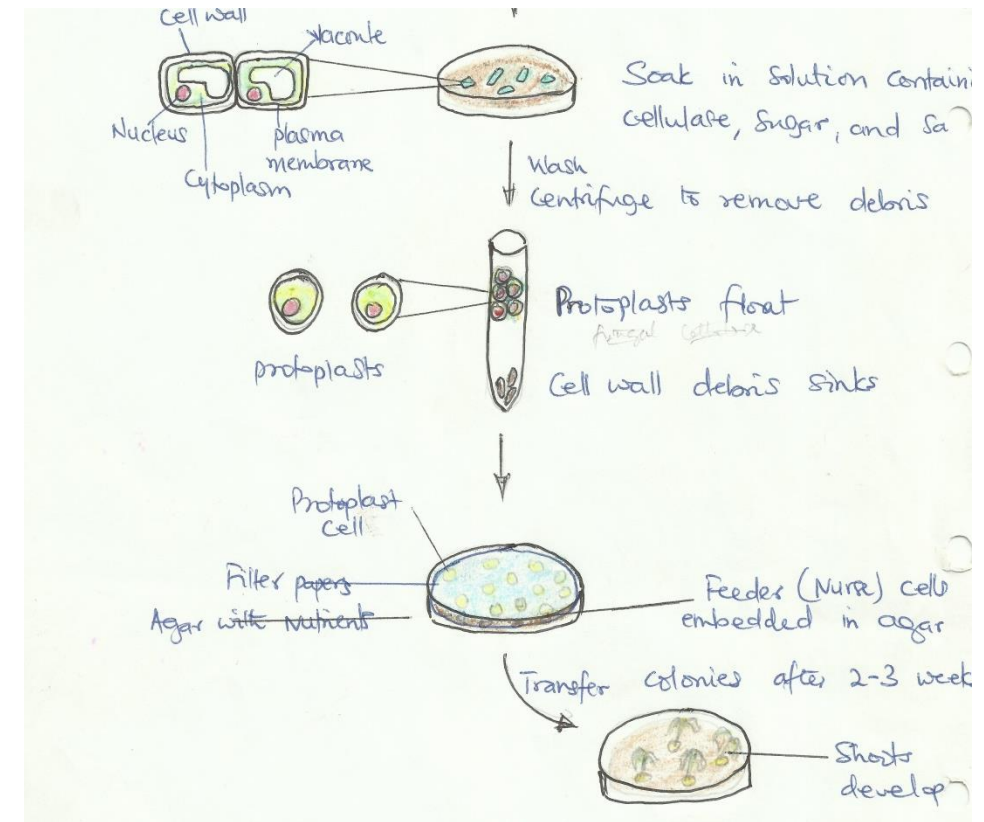 Cell wall
Vacoule
Nucleus
plasma
membrane
Cytoplasm
Soak in Solution containi
Cellulase, Sugar, and Sa
Wash
Centrifuge to remove debris
Protoplasts float
protoplasts
Cell wall debris sinks
Protoplast
Cell
Filter papers
Agar with Nutrients
Feeder (Nurse) cells
embedded in agar
Transfer colonies after 2-3 week
Shoots
develop